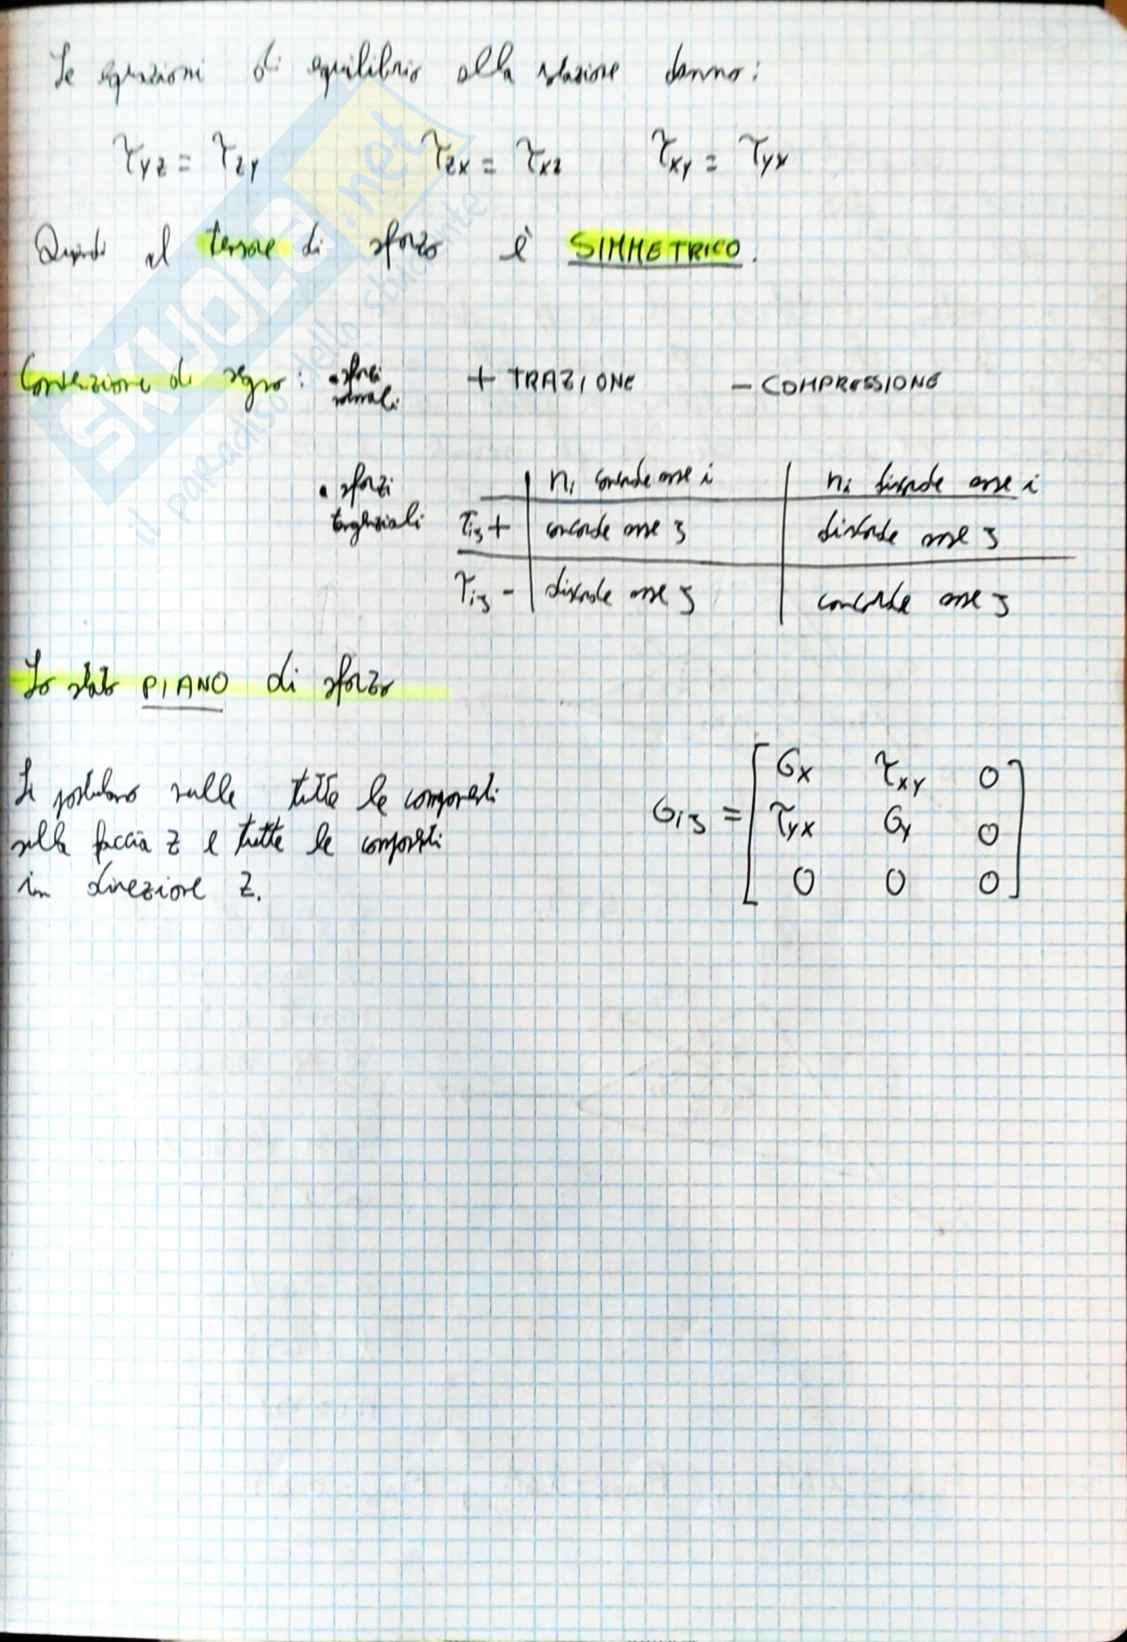 Le equazioni di equilibrio alla rotazione danno:
τyz = τzy τzx = τxz τxy = τyx
Quindi il tensore di sforzo è SIMMETRICO.
Convenzione di segno: • sforzi normali: + TRAZIONE - COMPRESSIONE
• sforzi tangenziali
ni concorde asse i ni discorde asse i
τij + concorde asse j discorde asse j
τij - discorde asse j concorde asse j
Lo stato PIANO di sforzo
Si postulano nulle tutte le componenti
sulla faccia z e tutte le componenti
in direzione z.
σij = [σx τxy 0
τyx σy 0
0 0 0]
SKUOLA.net
il paradiso dello studente